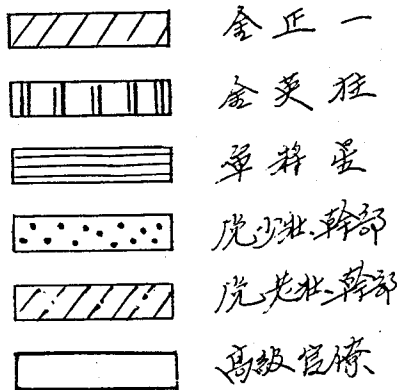 金正一
金英柱
軍将星
党少壮幹部
党老壮幹部
高級官僚